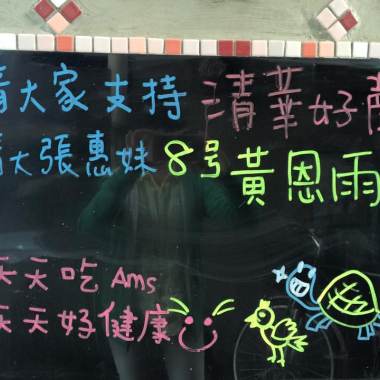 請大家支持 清華好
清大張惠妹 8号 黃恩雨
天天吃 Ams
天天好健康